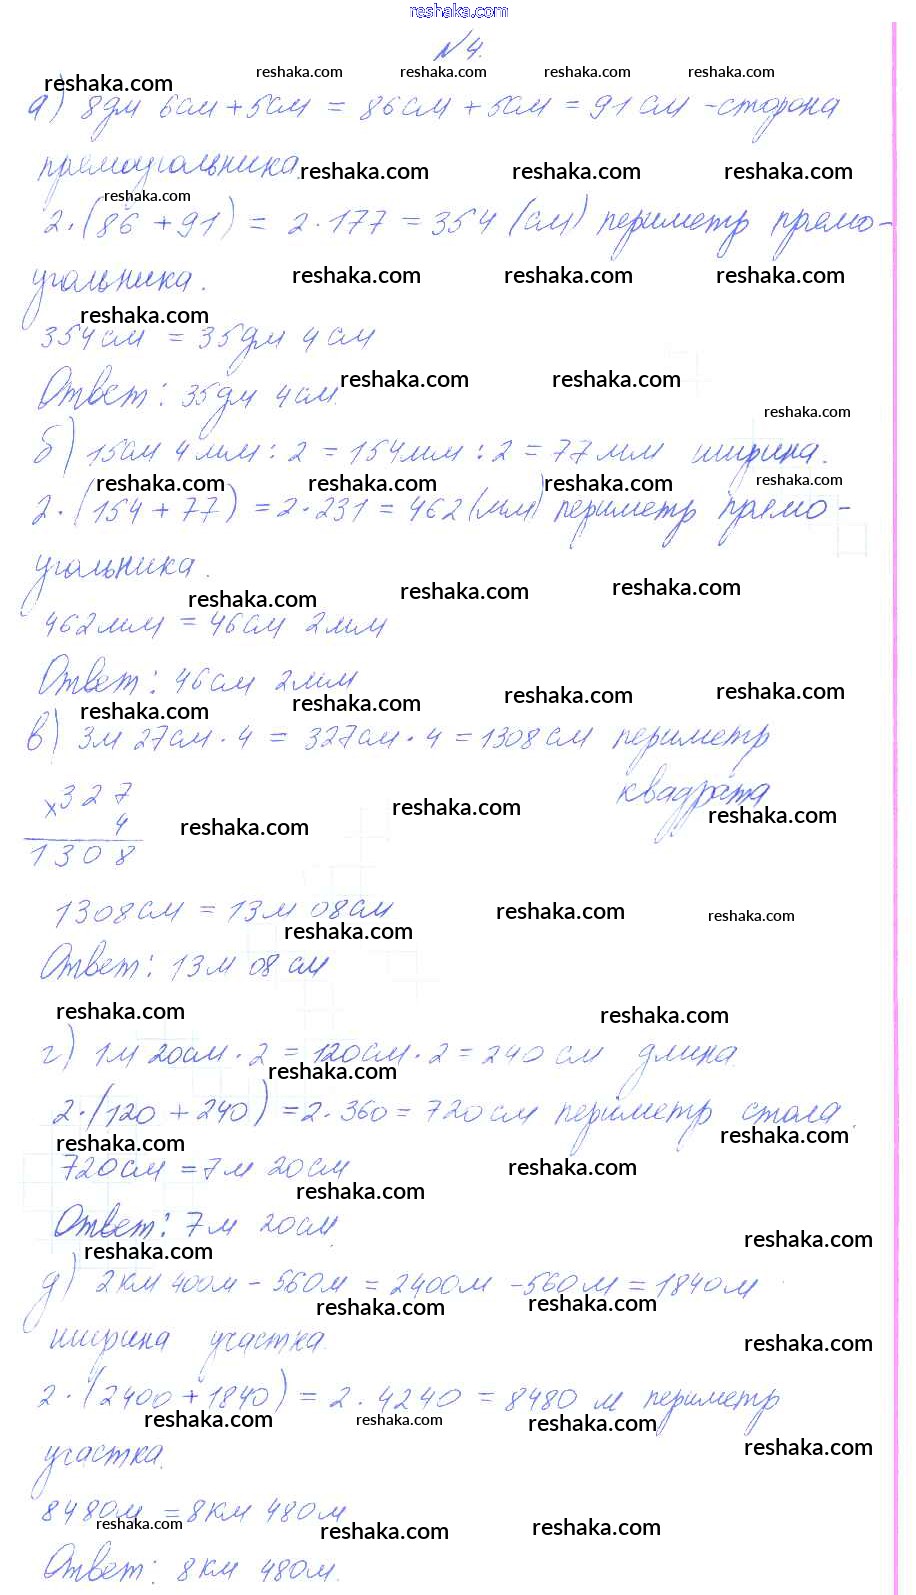 reshaka.com
№4.
reshaka.com reshaka.com reshaka.com reshaka.com reshaka.com
а) 8дм 6см + 5см = 86см + 5см = 91 см - сторона
прямоугольника. reshaka.com reshaka.com reshaka.com
reshaka.com
2·(86 + 91) = 2·177 = 354 (см) периметр прямо-
угольника. reshaka.com reshaka.com reshaka.com
reshaka.com
354см = 35дм 4см
Ответ: 35дм 4см. reshaka.com reshaka.com
reshaka.com
б) 15см 4мм : 2 = 154мм : 2 = 77мм ширина.
reshaka.com reshaka.com reshaka.com reshaka.com
2·(154 + 77) = 2·231 = 462 (мм) периметр прямо-
угольника.
reshaka.com reshaka.com reshaka.com
462мм = 46см 2мм
Ответ: 46см 2мм
reshaka.com reshaka.com reshaka.com reshaka.com
в) 3м 27см · 4 = 327см · 4 = 1308см периметр
квадрата
×327
4
reshaka.com reshaka.com reshaka.com
1308
1308см = 13м 08см reshaka.com reshaka.com
reshaka.com
Ответ: 13м 08см
reshaka.com reshaka.com
г) 1м 20см · 2 = 120см · 2 = 240 см длина.
reshaka.com
2·(120 + 240) = 2·360 = 720см периметр стола.
reshaka.com reshaka.com
720см = 7м 20см reshaka.com
reshaka.com
Ответ: 7м 20см.
reshaka.com reshaka.com
д) 2км 400м - 560м = 2400м - 560м = 1840м
reshaka.com reshaka.com
ширина участка. reshaka.com
2·(2400 + 1840) = 2·4240 = 8480 м периметр
reshaka.com reshaka.com reshaka.com
участка. reshaka.com
8480м = 8км 480м
reshaka.com reshaka.com reshaka.com
Ответ: 8км 480м.